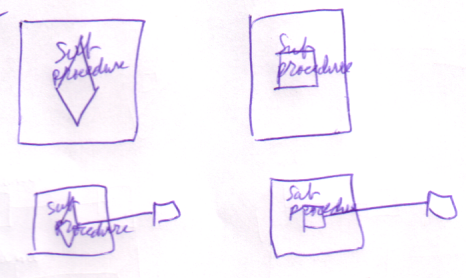 Sub
procedure
Sub
procedure
Sub
procedure
Sub
procedure